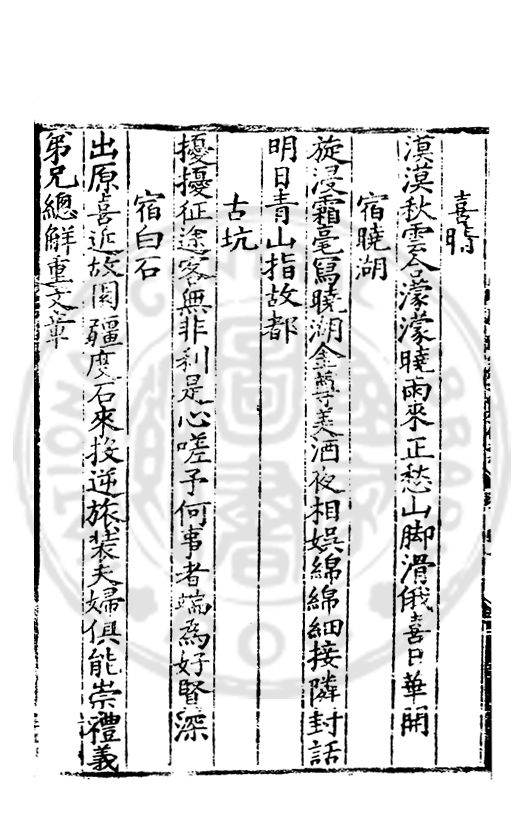 喜晴
漠漠秋雲合濛濛曉雨來正愁山脚滑俄喜日華開
宿曉湖
旋浸霜毫寫曉湖金尊美酒夜相娛綿綿細接隣封話
明日青山指故都
古坑
擾擾征途客無非利是心嗟予何事者端為好賢深
宿白石
出原喜近故閭疆度石來投逆旅裝夫婦俱能崇禮義
弟兄總解重文章